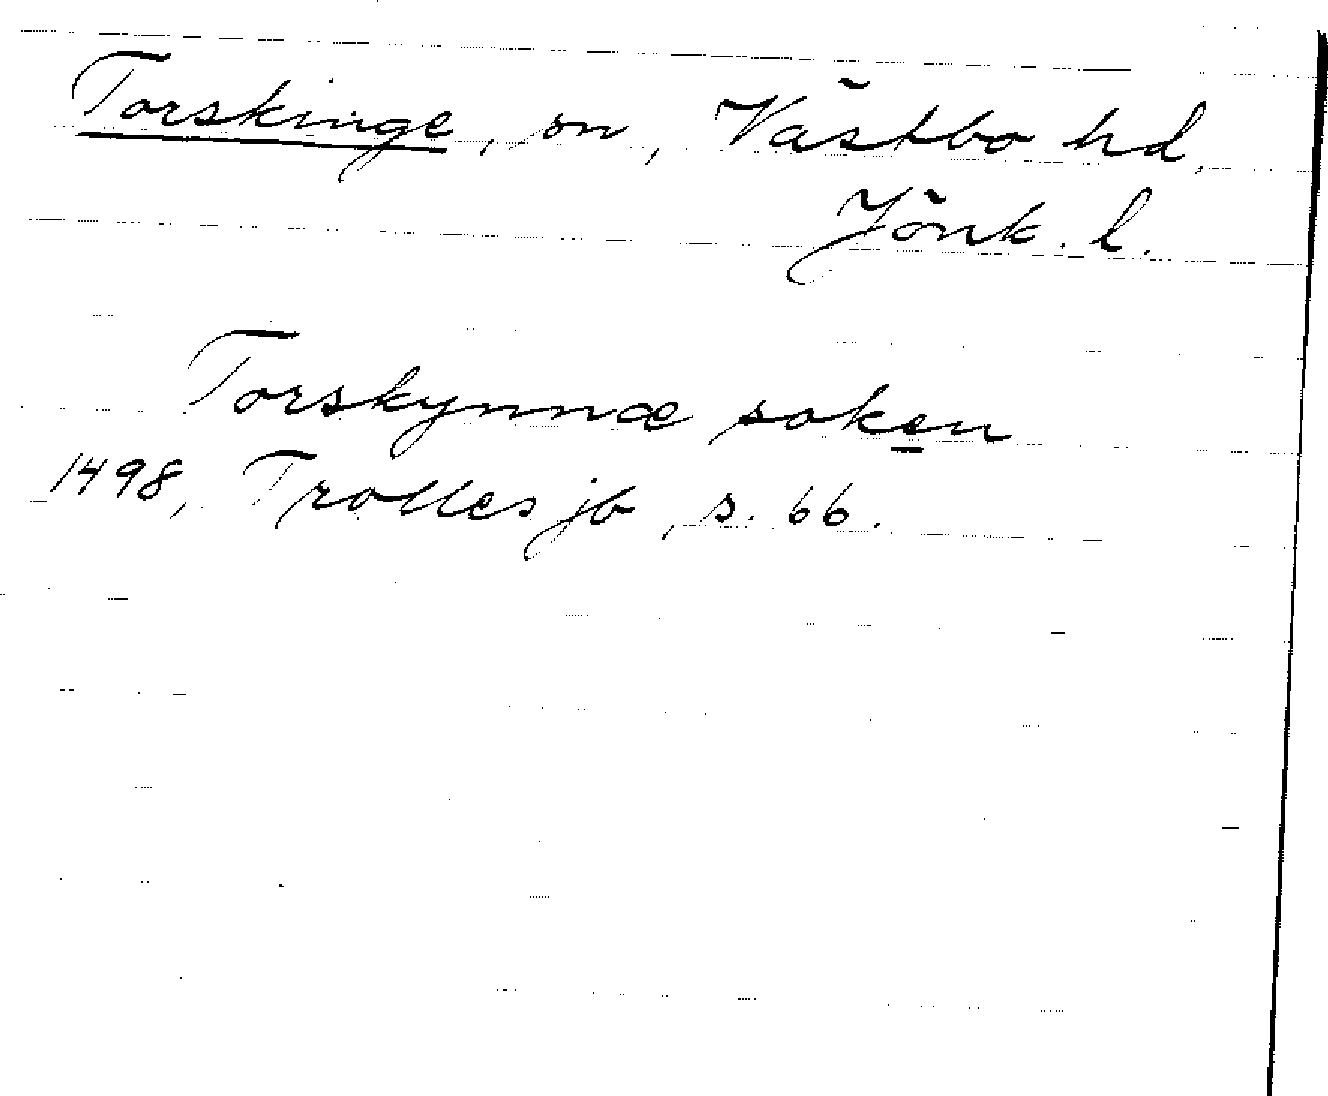 Torskinge, sn, Västbo hd,
Jönk. l.
Torskynnæ soken
1498, Trolles jb, s. 66.